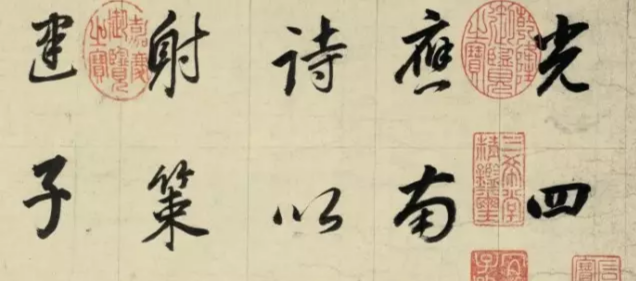 光四
應南
詩以
射策
建子
乾隆御覽之寶
三希堂精鑑璽
嘉慶御覽之寶
宜子